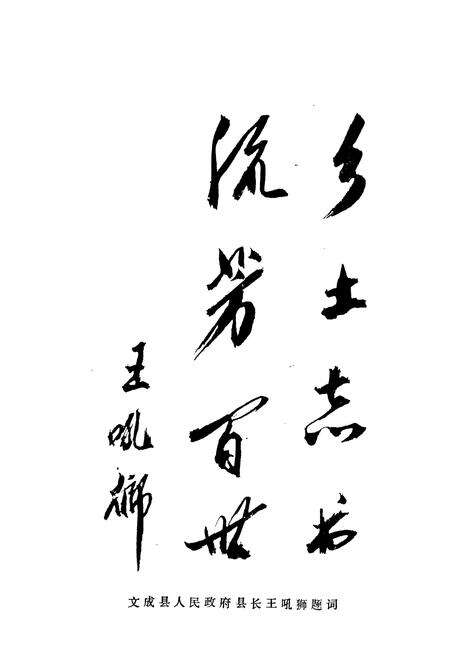 乡土志书
流芳百世
王吼狮
文成县人民政府县长王吼狮题词